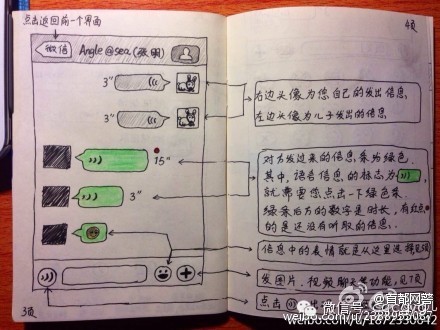 点击返回前一个界面
微信
Angle@sea(张明)
3"
3"
15"
3"
3页
4页
右边头像为您自己的发出信息,
左边头像为儿子发出的信息
对方发过来的信息条为绿色.
其中,语音信息的标志为
就需要您点击一下绿色条
绿条后方的数字是时长,有红点
的是还没有听取的信息.
信息中的表情就是从这里选择
发图片、视频聊天等功能,见7页
点击
@首都网警